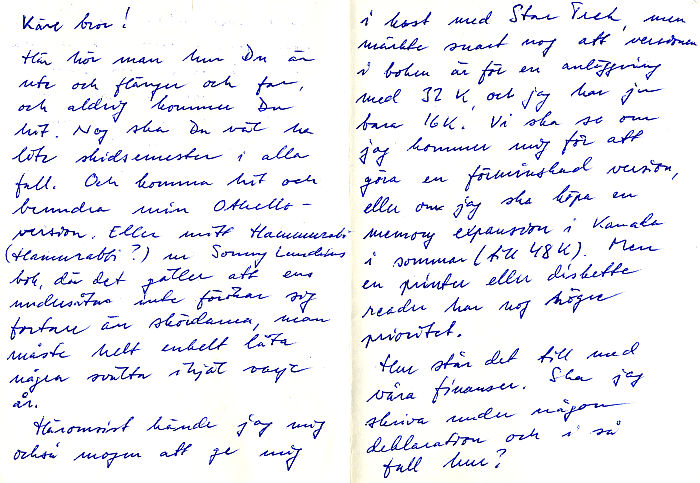 Käre bror!
Här hör man hur Du är
ute och flänger och far,
och aldrig kommer Du
hit. Nog ska Du väl ha
lite skidsemester i alla
fall. Och komma hit och
beundra min Othello-
version. Eller mitt Hammurabi
(Hamurabbi?) ur Sonny Lundins
bok, där det gäller att ens
undersåtar inte förökar sig
fortare än skördarna, man
måste helt enkelt låta
några svälta ihjäl varje
år.
Häromsist kände jag mig
också mogen att ge mig
i kast med Star Trek, men
märkte snart nog att versionen
i boken är för en anläggning
med 32 K, och jag har ju
bara 16K. Vi ska se om
jag kommer mig för att
göra en förminskad version,
eller om jag ska köpa en
memory expansion i Kanada
i sommar (till 48K). Men
en printer eller diskette
reader har nog högre
prioritet.
Hur står det till med
våra finanser. Ska jag
skriva under någon
deklaration och i så
fall hur?